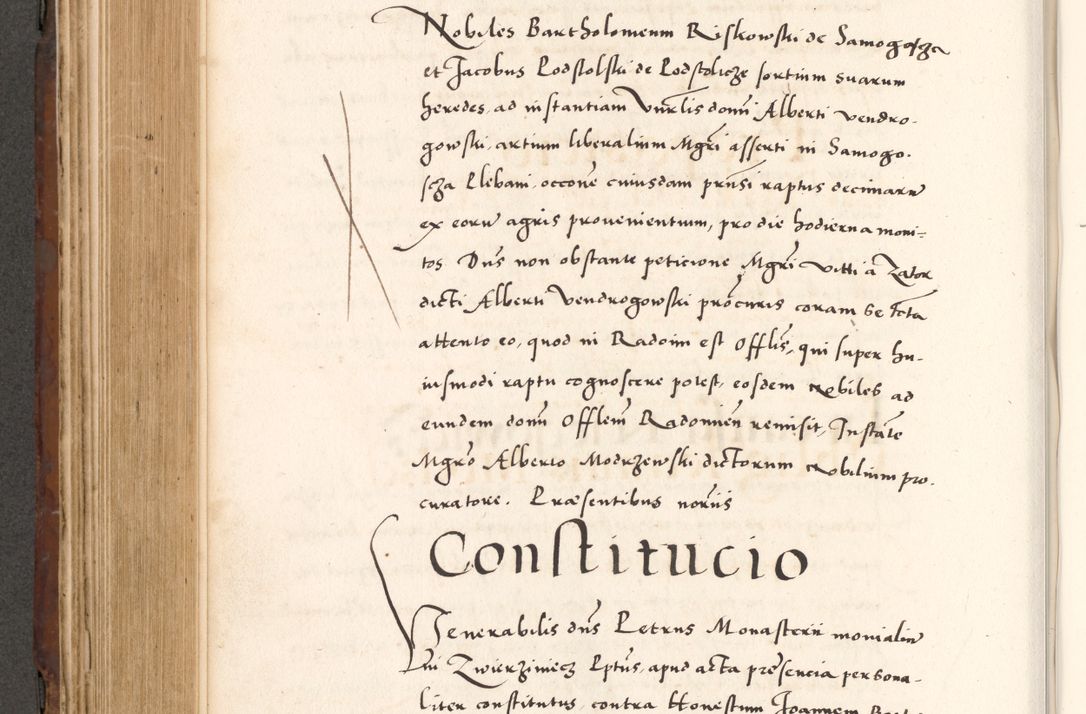 Nobiles Bartholomeum Riskowski de Samogoscza
et Jacobus Podstolski de Podstolicze sortium suarum
heredes, ad instantiam Vnrlis domi Alberti vendro-
gowski, artium liberalium Mgri asserti in Samogo-
scza Plebani, occone cuiusdam prnsi raptus decimarum
ex eoru agris provenientium, pro die hodierna moni-
tos Dns non obstante peticione Mgri Vitti a Zator
dicti Alberti Vendrogowski procuris coram se fcta
attento eo, quod in Radom est Offlis, qui super hu-
iusmodi raptu cognoscere potest, eosdem nobiles ad
eundem domi Offlem Radomien remisit, Instate
Mgro Alberto Modrzewski dictorum nobilium pro-
curatore. Præsentibus noriis
Constitucio
Venerabilis dns Petrus Monasterii monialiu
in Zwierziniecz Pptus, apud acta presencia persona-
liter constitutus, contra Honestum Joannem